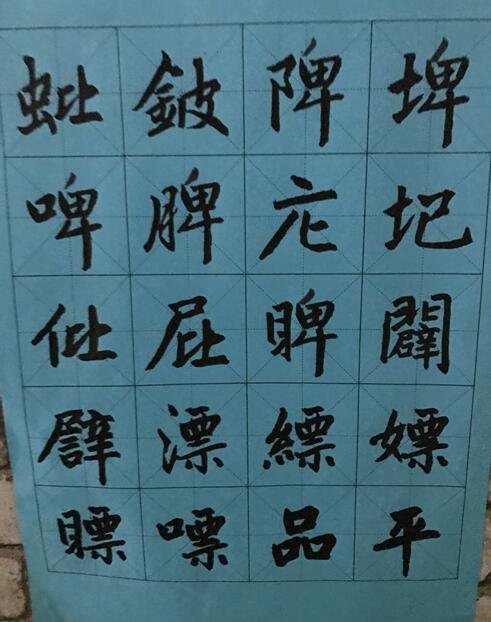 蚍鈹陴埤
啤脾庀圮
仳屁睥闢
譬漂縹嫖
瞟嘌品平